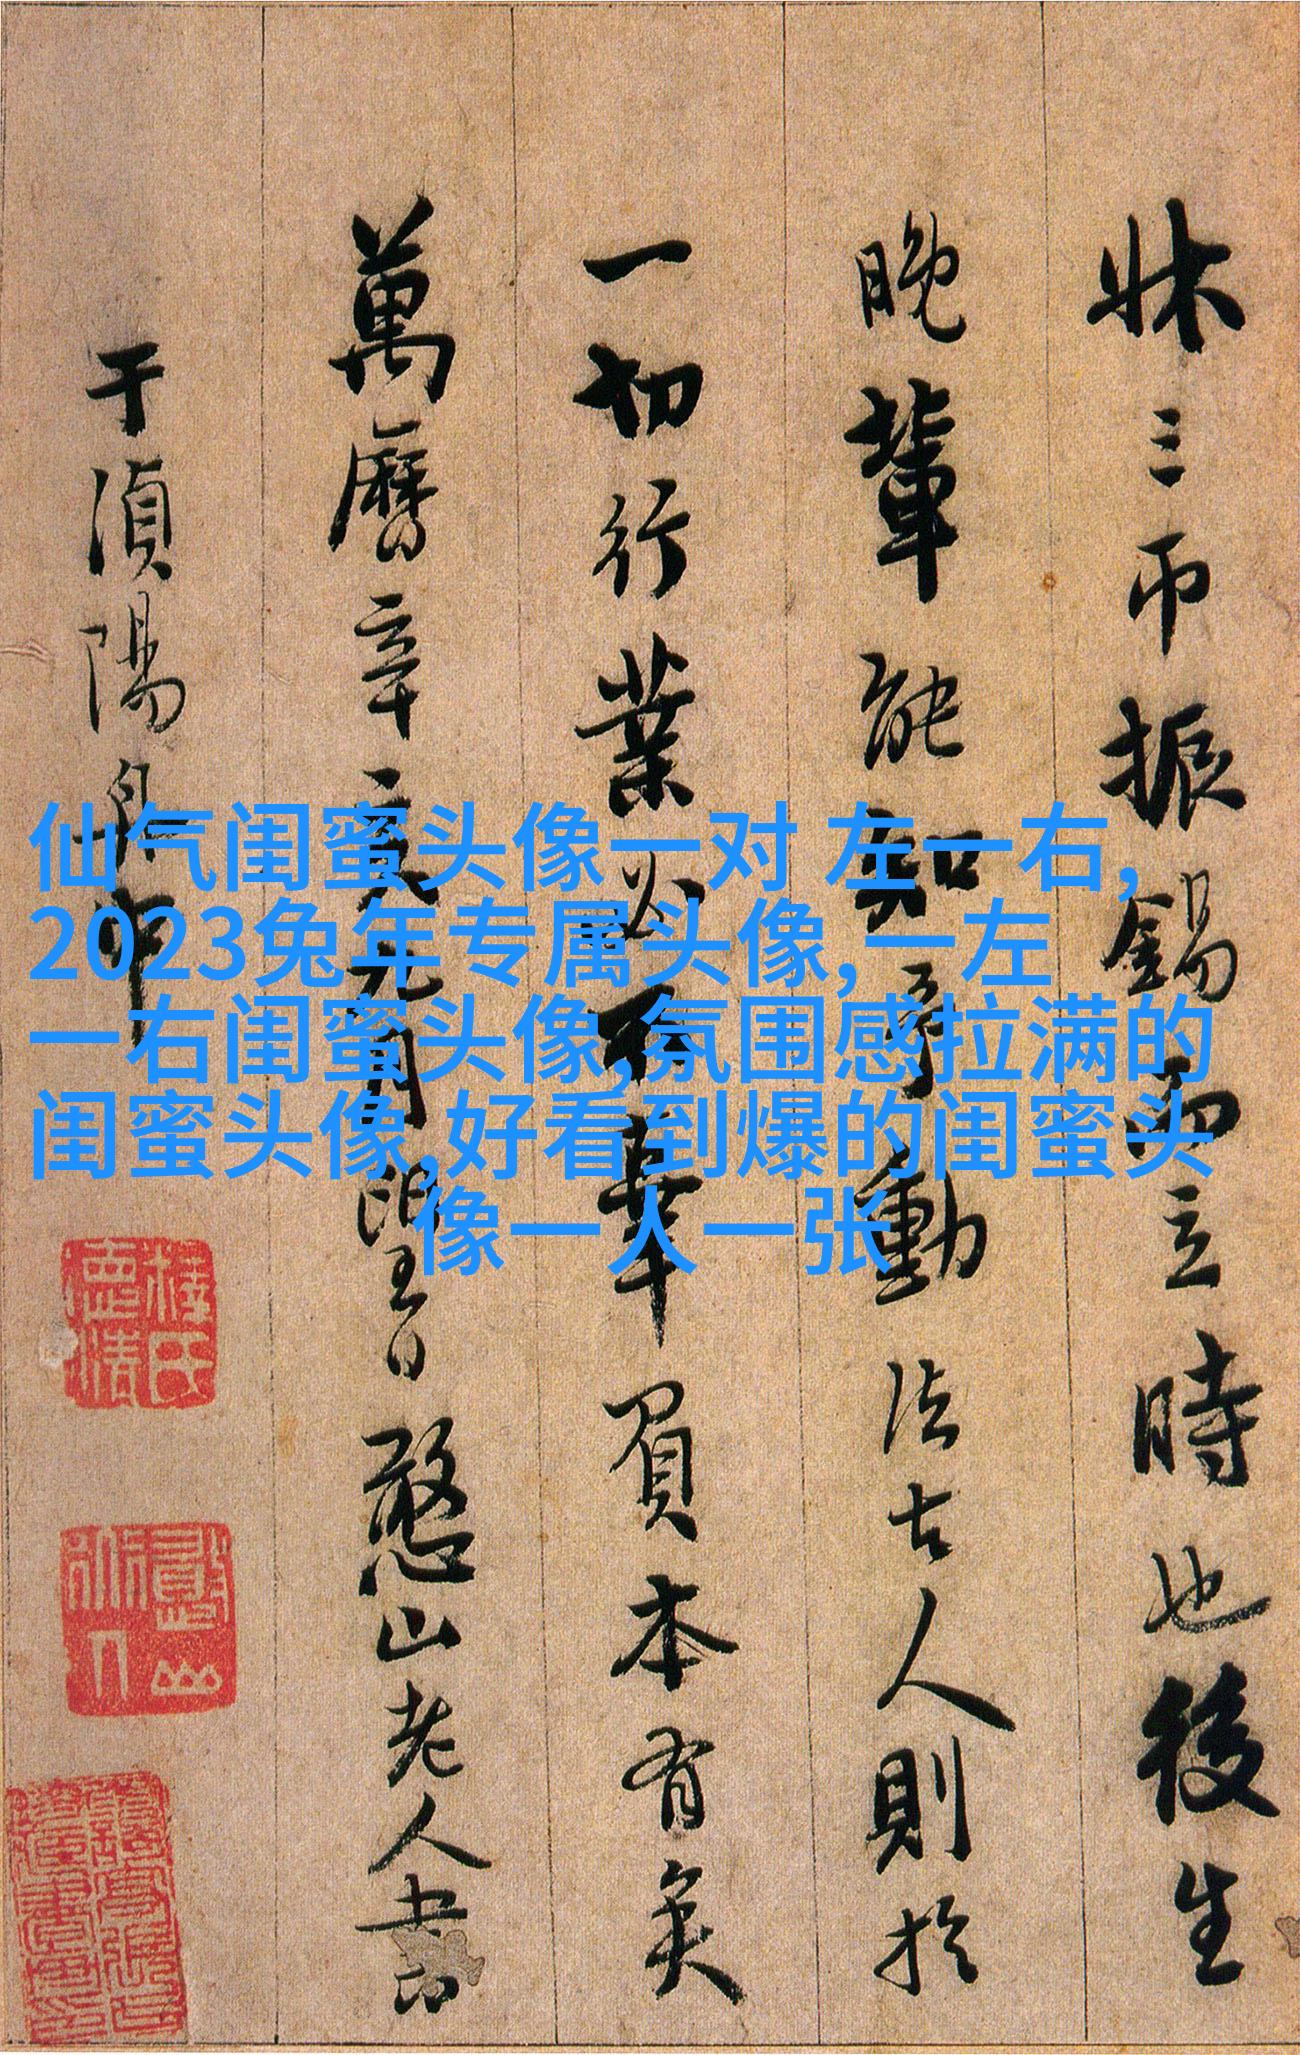 仙气闺蜜头像一对 左一右,
2023兔年专属头像,一左
一右闺蜜头像,氛围感拉满的
闺蜜头像,好看到爆的闺蜜头
像一人一张
牀三帀振錫而立時也後生
晚輩能知動法古人則於
一切行業必不辜負本有矣
萬曆辛亥月望日憨山老人書
于湞陽舟中